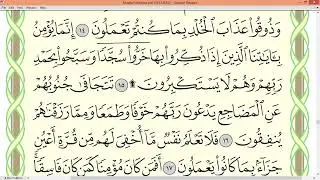 وَذُوقُوا۟ عَذَابَ ٱلْخُلْدِ بِمَا كُنتُمْ تَعْمَلُونَ ١٤ إِنَّمَا يُؤْمِنُ
بِـَٔايَـٰتِنَا ٱلَّذِينَ إِذَا ذُكِّرُوا۟ بِهَا خَرُّوا۟ سُجَّدًا وَسَبَّحُوا۟ بِحَمْدِ
رَبِّهِمْ وَهُمْ لَا يَسْتَكْبِرُونَ ۩ ١٥ تَتَجَافَىٰ جُنُوبُهُمْ
عَنِ ٱلْمَضَاجِعِ يَدْعُونَ رَبَّهُمْ خَوْفًا وَطَمَعًا وَمِمَّا رَزَقْنَـٰهُمْ
يُنفِقُونَ ١٦ فَلَا تَعْلَمُ نَفْسٌ مَّآ أُخْفِىَ لَهُم مِّن قُرَّةِ أَعْيُنٍ
جَزَآءًۢ بِمَا كَانُوا۟ يَعْمَلُونَ ١٧ أَفَمَن كَانَ مُؤْمِنًا كَمَن كَانَ فَاسِقًا